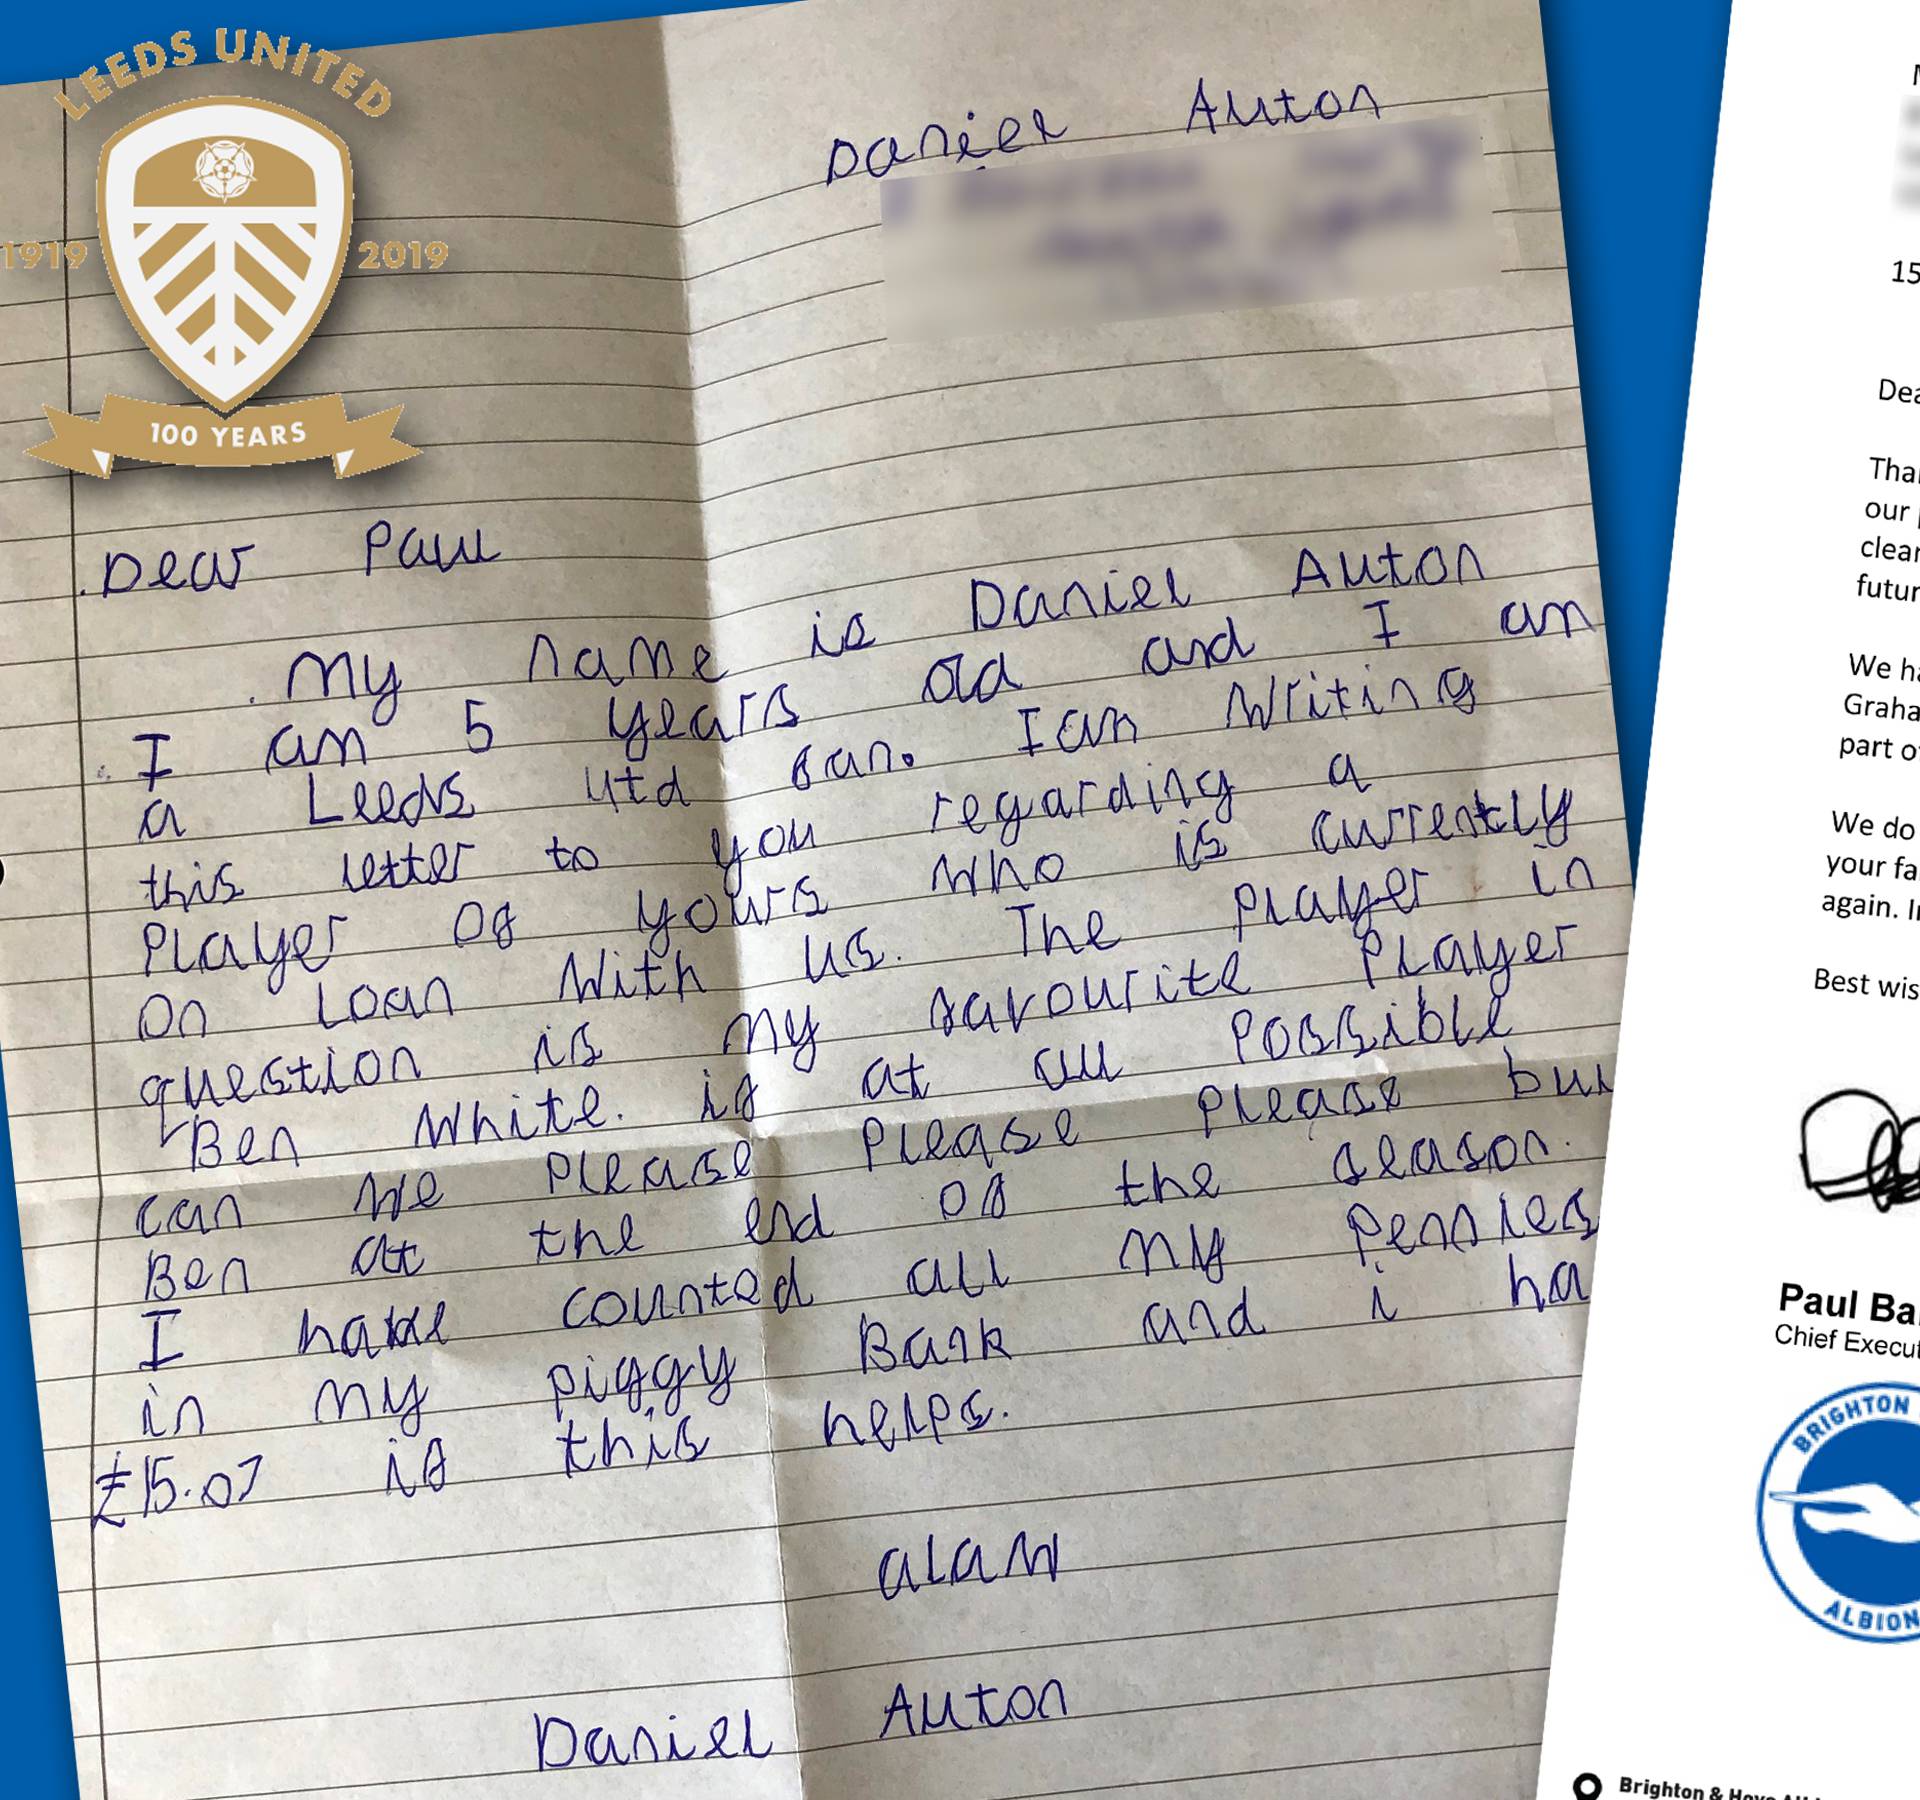 LEEDS UNITED
1919 2019
100 YEARS
Daniel Auton
Dear Paul
My name is Daniel Auton
I am 5 years old and I am
a Leeds utd fan. I am Writing
this letter to you regarding a
Player of yours who is currently
on Loan With us. The player in
question is my favourite Player
Ben White. if at all Possible
can We Please Please Please bui
Ben at the end of the season.
I have counted all my Pennies
in my piggy Bank and i ha
£15.07 if this helps.
alaw
Daniel Auton
15
Dea
Tha
our
clear
futur
We ha
Graha
part o
We do
your fa
again. I
Best wis
Paul Ba
Chief Execut
BRIGHTON
ALBION
Brighton & Hove Alb